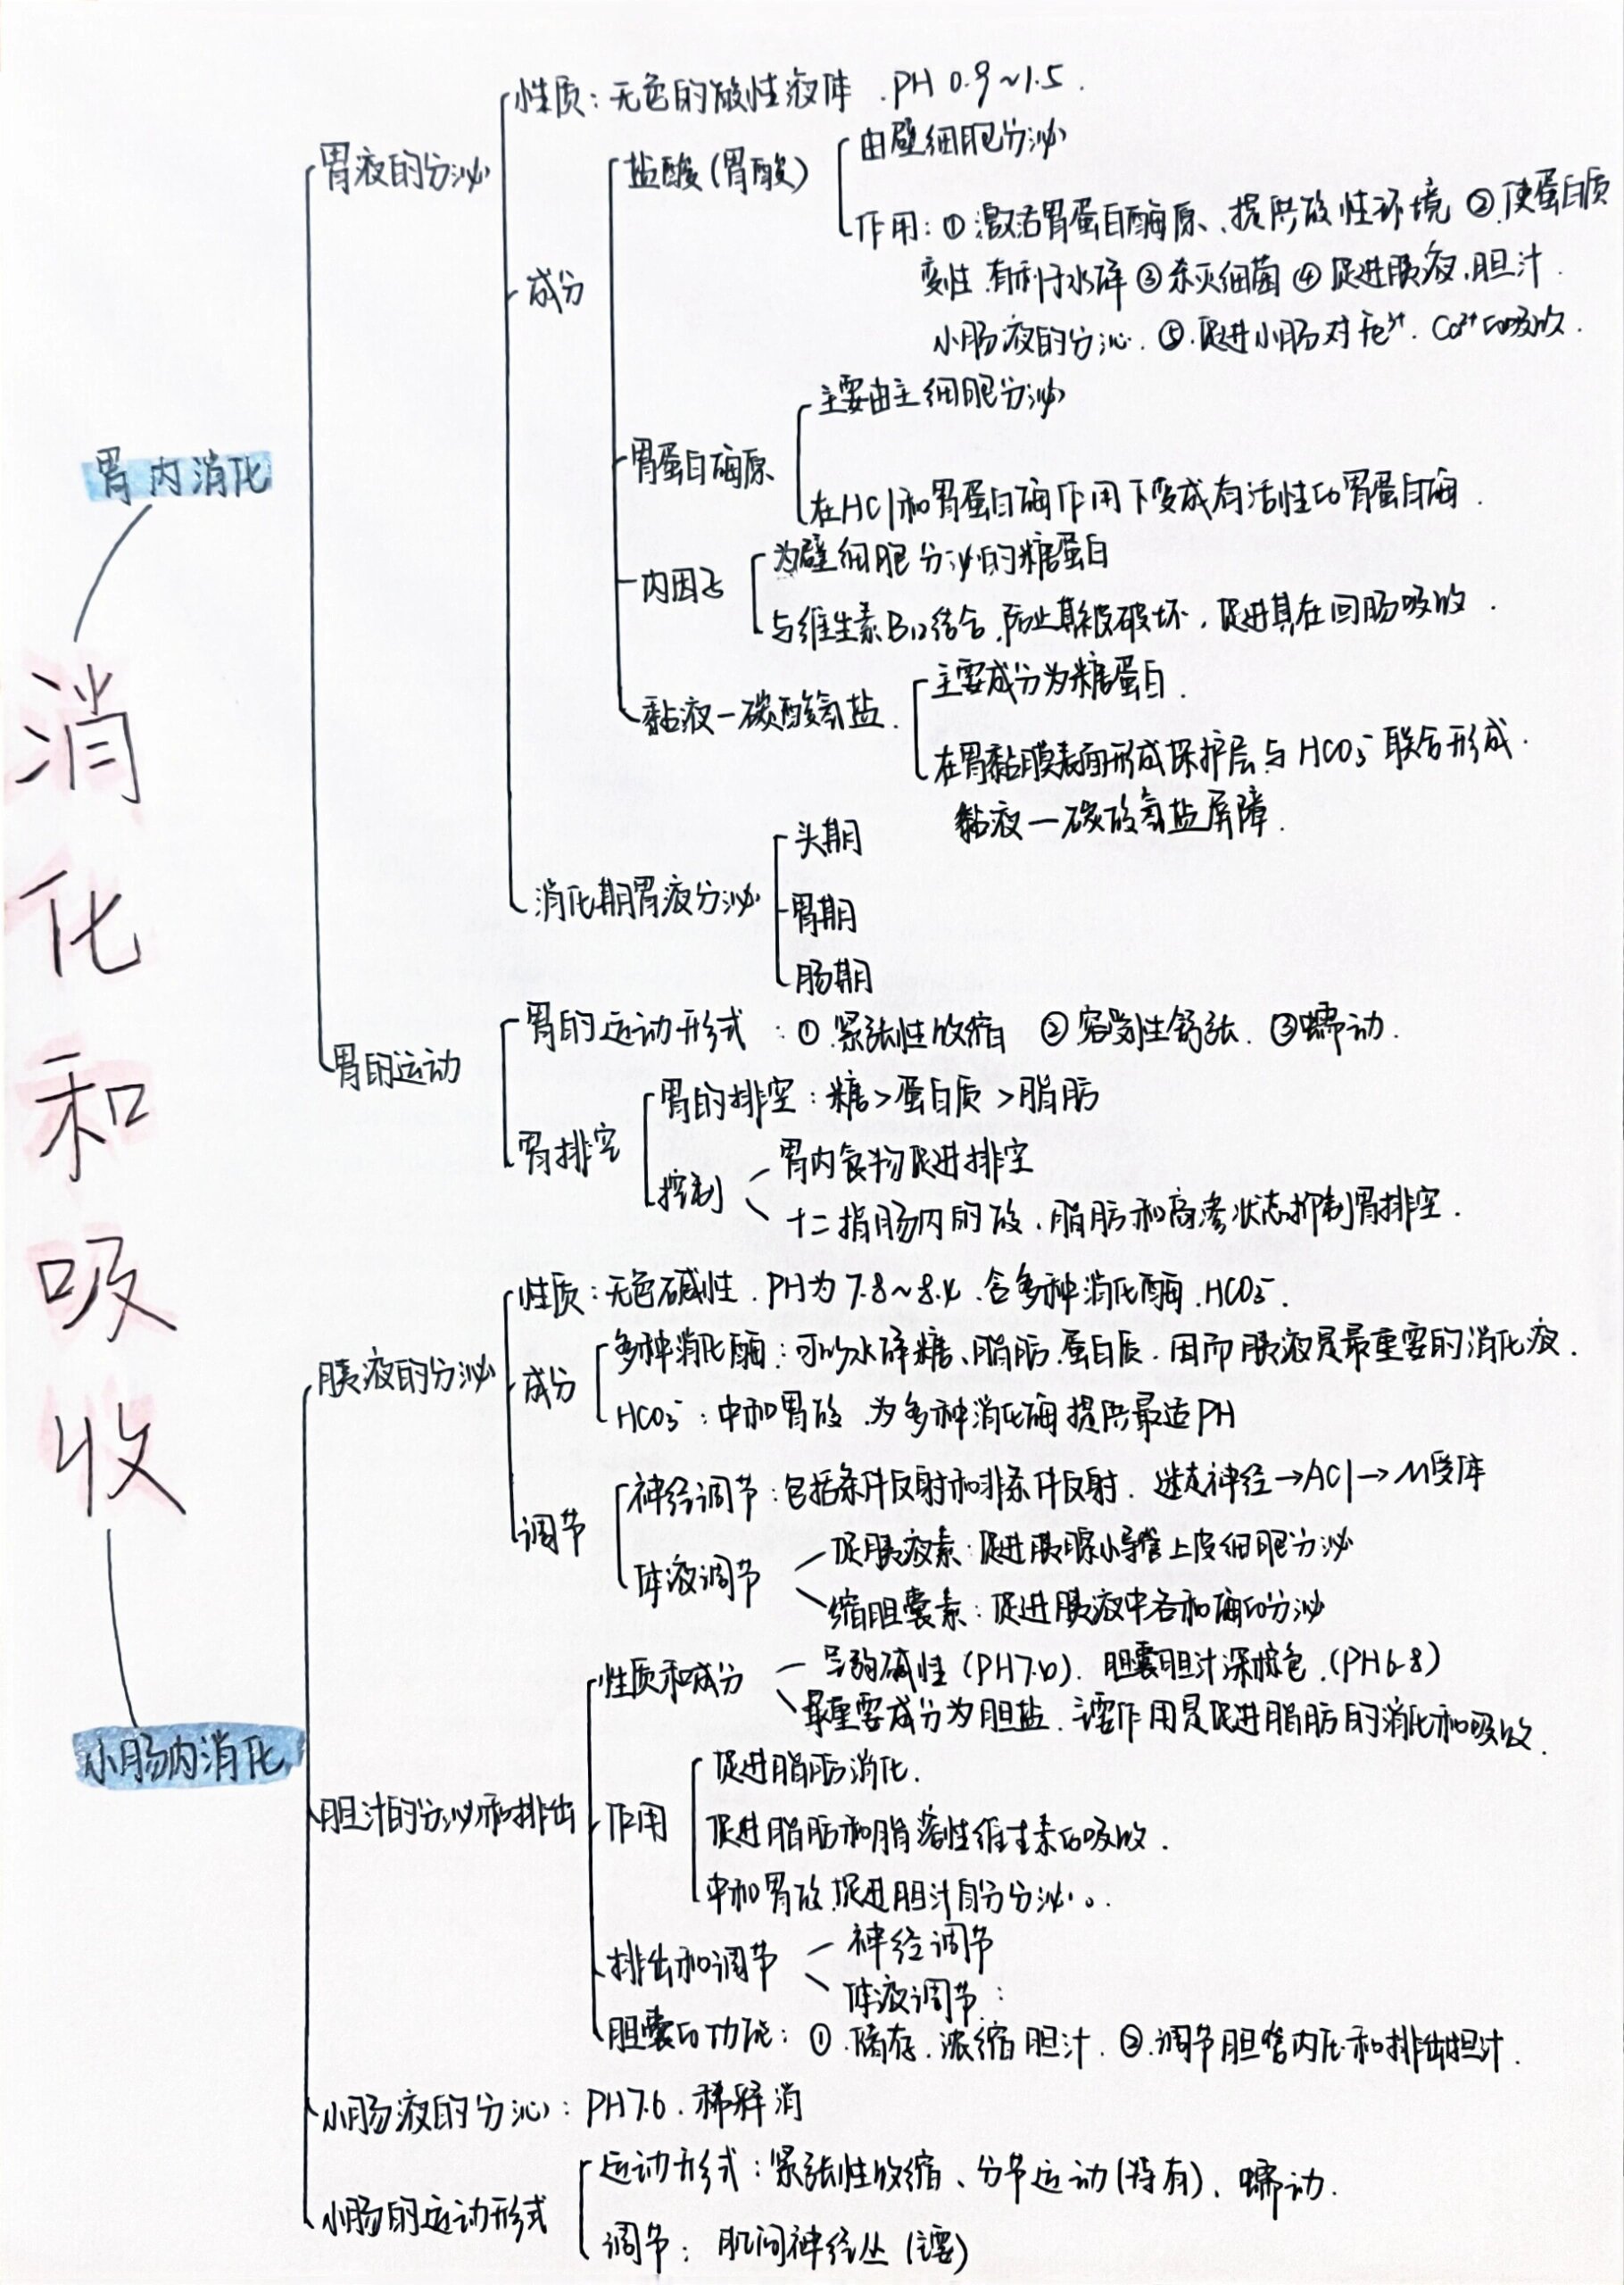 消化和吸收
胃内消化
胃液的分泌
性质：无色的酸性液体．PH 0.9~1.5．
成分
盐酸（胃酸）
由壁细胞分泌
作用：①激活胃蛋白酶原、提供酸性环境 ②．使蛋白质
变性．有利于水碎 ③杀灭细菌 ④促进胰液．胆汁．
小肠液的分泌．⑤．促进小肠对Fe³⁺．Ca²⁺的吸收．
胃蛋白酶原
主要由主细胞分泌
在HCl和胃蛋白酶作用下变成有活性的胃蛋白酶．
内因子
为壁细胞分泌的糖蛋白
与维生素B12结合．防止其被破坏．促进其在回肠吸收．
黏液—碳酸氢盐．
主要成分为糖蛋白．
在胃黏膜表面形成保护层．与HCO₃⁻联合形成．
黏液—碳酸氢盐屏障．
消化期胃液分泌
头期
胃期
肠期
胃的运动
胃的运动形式：①．紧张性收缩 ②容受性舒张．③蠕动．
胃排空
胃的排空：糖>蛋白质>脂肪
控制
胃内食物促进排空
十二指肠内的酸．脂肪和高渗状态抑制胃排空．
小肠内消化
胰液的分泌
性质：无色碱性．PH为7.8~8.4．含多种消化酶．HCO₃⁻．
成分
多种消化酶：可以水碎糖、脂肪．蛋白质．因而胰液是最重要的消化液．
HCO₃⁻：中和胃酸．为多种消化酶提供最适PH
调节
神经调节：包括条件反射和非条件反射．迷走神经→ACl→M受体
体液调节
促胰液素：促进胰腺小导管上皮细胞分泌
缩胆囊素：促进胰液中各和酶的分泌
胆汁的分泌和排出
性质和成分
弱碱性（PH7.6）．胆囊胆汁深棕色．（PH6-8）
最重要成分为胆盐．主要作用是促进脂肪的消化和吸收．
作用
促进脂肪消化．
促进脂肪和脂溶性维生素的吸收．
中和胃酸．促进胆汁自分分泌。．
排出和调节
神经调节
体液调节：
胆囊的功能：①．储存．浓缩胆汁．②．调节胆管内压和排出担汁．
小肠液的分泌：PH7.6．稀释消
小肠的运动形式
运动形式：紧张性收缩、分节运动（特有）、蠕动．
调节：肌间神经丛（主要）